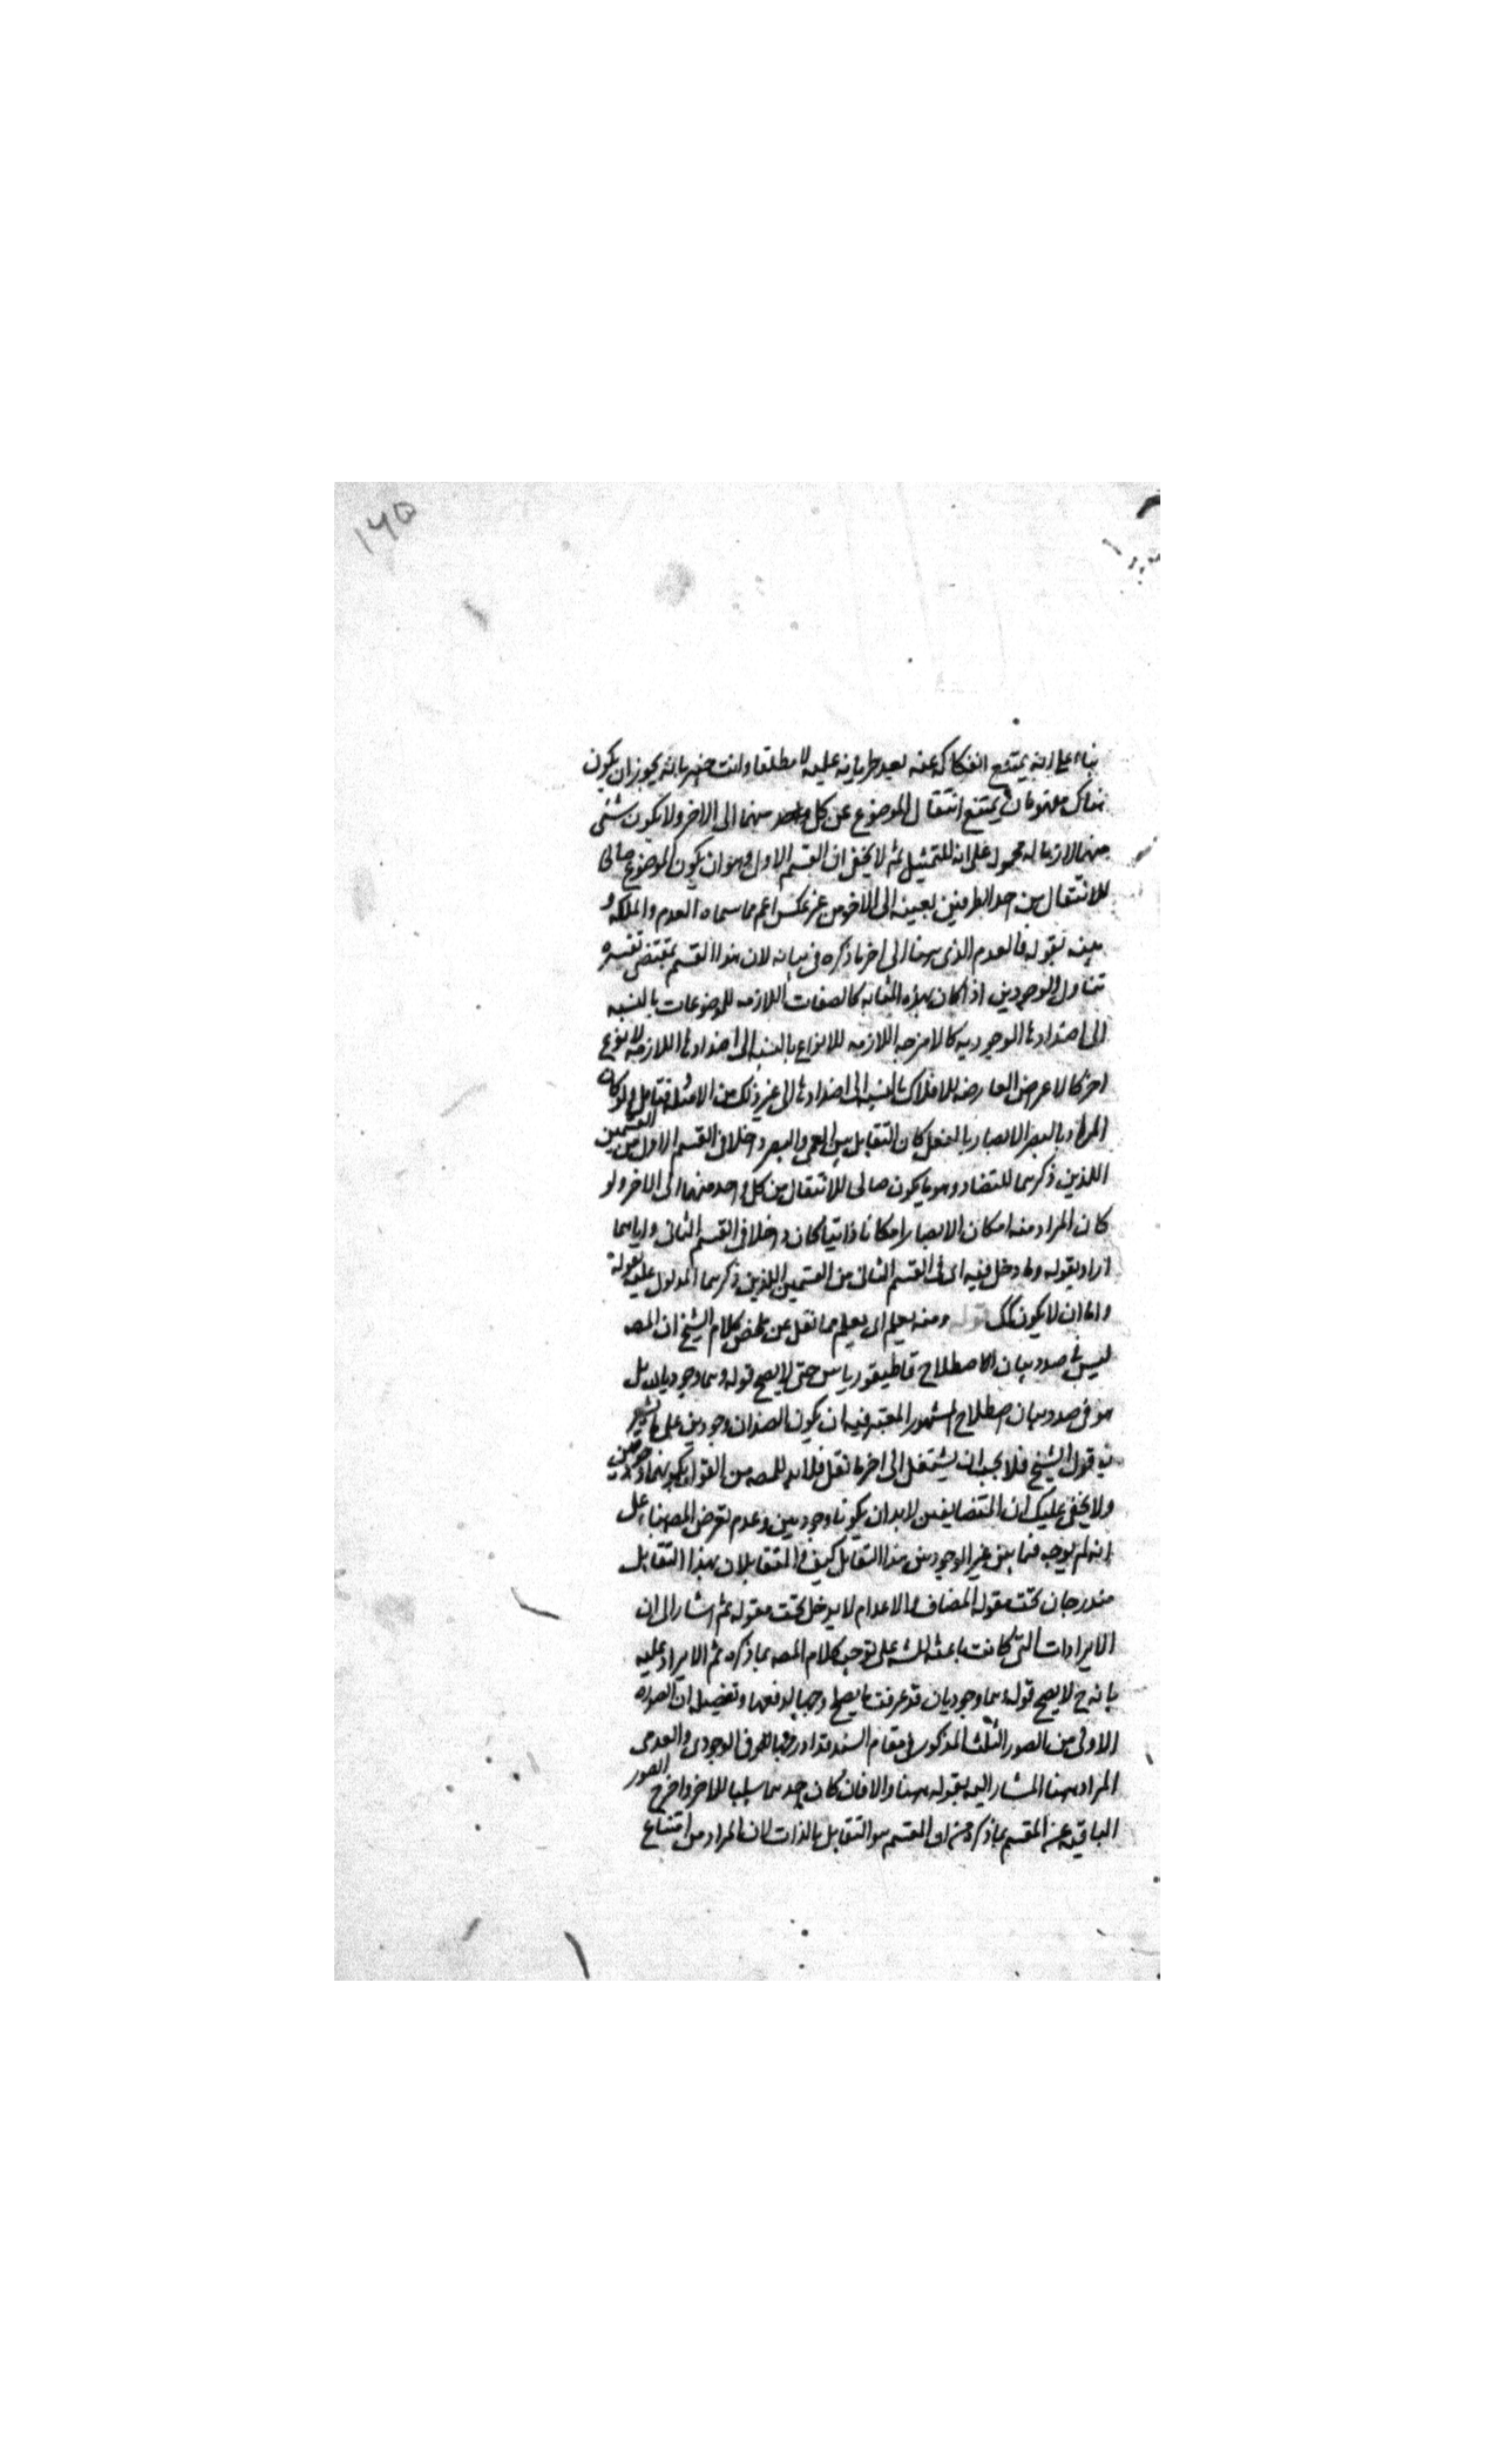 ١٧٥
بناء على انه يمتنع انفكاكه عنه بعد طريانه عليه لا مطلقا وانت خبير بانه يجوز ان يكون
هناك مفهومان يمتنع انتقال الموضوع عن كل واحد منهما الى الاخر ولا يكون شئ
منهما لازما له محمول على انه للتمثيل ثم لا يخفى ان القسم الاول وهو ان يكون الموضوع صالحا
للانتقال من احد الطرفين بعينه الى الاخر من غير عكس اعم مما سماه العدم والملكة و
بقوله فالعدم الذى ههنا الى اخر ما ذكره فى بيانه لان هذا القسم بمقتضى تفسيره
تناول الوجودين اذا كان بهذه المثابه كالصفات اللازمه للموضوعات بالنسبه
الى اضدادها الوجوديه كالامزجه اللازمه للانواع بالنسبه الى اضدادها اللازمه لانواع
اخر كالاعراض العارضه للافلاك بالنسبه الى اضدادها الى غير ذلك من الامثله فتامل ولو كان
المراد بالبصر الابصار بالفعل كان التقابل بين العمى والبصر داخلا فى القسم الاول من القسمين
اللذين ذكرهما للتضاد وهو ما يكون صالحا للانتقال من كل واحد منهما الى الاخر ولو
كان المراد منه امكان الابصار امكانا ذاتيا كان داخلا فى القسم الثانى واياهما
اراد بقوله وما دخل فيه اى فى القسم الثانى من القسمين اللذين ذكرهما المدلول عليه بقوله
واما ان لا يكون كك قوله ومنه يعلم اى يعلم مما نقل عن ملخص كلام الشيخ ان المصـ
ليس فى صدد بيان اصطلاح قاطيقورياس حتى لا يصح قوله وهما وجوديان بل
هو فى صدد بيان اصطلاح المشهور المعتبر فيه ان يكون الضدان وجودين على ما يشير
اليه قول الشيخ فلا يجب ان يشتغل الى اخر ما نقل فلا بد للمصـ من القول بكونهما وجودين
ولا يخفى عليك ان المتضايفين لا بد ان يكونا وجوديين وعدم تعرض المصـ بناء على
انه لم يوجد فيما بين غير الوجودين هذا التقابل كيف والمتقابلان بهذا التقابل
مندرجان تحت مقوله المضاف والاعدام لا يدخل تحت مقوله ثم اشار الى ان
الايرادات التى كانت باعثه للشـ على توجيه كلام المصـ بما ذكره ثم الايراد عليه
بانه ح لا يصح قوله وهما وجوديان قد عرفت ما يصلح وجها لدفعها وتفصيله ان الصوره
الاولى من الصور الثلث المذكوره فى مقام السند قد ادرجها فى الوجودى والعدمى
المراد ههنا المشار اليه بقوله ههنا والا فان كان احدهما سلبا للاخر واخرج الصور
الباقيه عن المقسم بما ذكره من ان المقسم هو التقابل بالذات لان المراد من امتناع